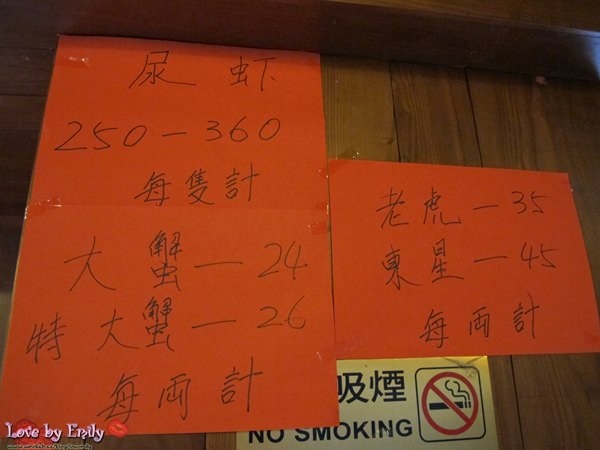 尿虾
250-360
每隻計
大蟹-24
特大蟹-26
每両計
老虎-35
東星-45
每両計
吸煙
NO SMOKING
Love by Emily